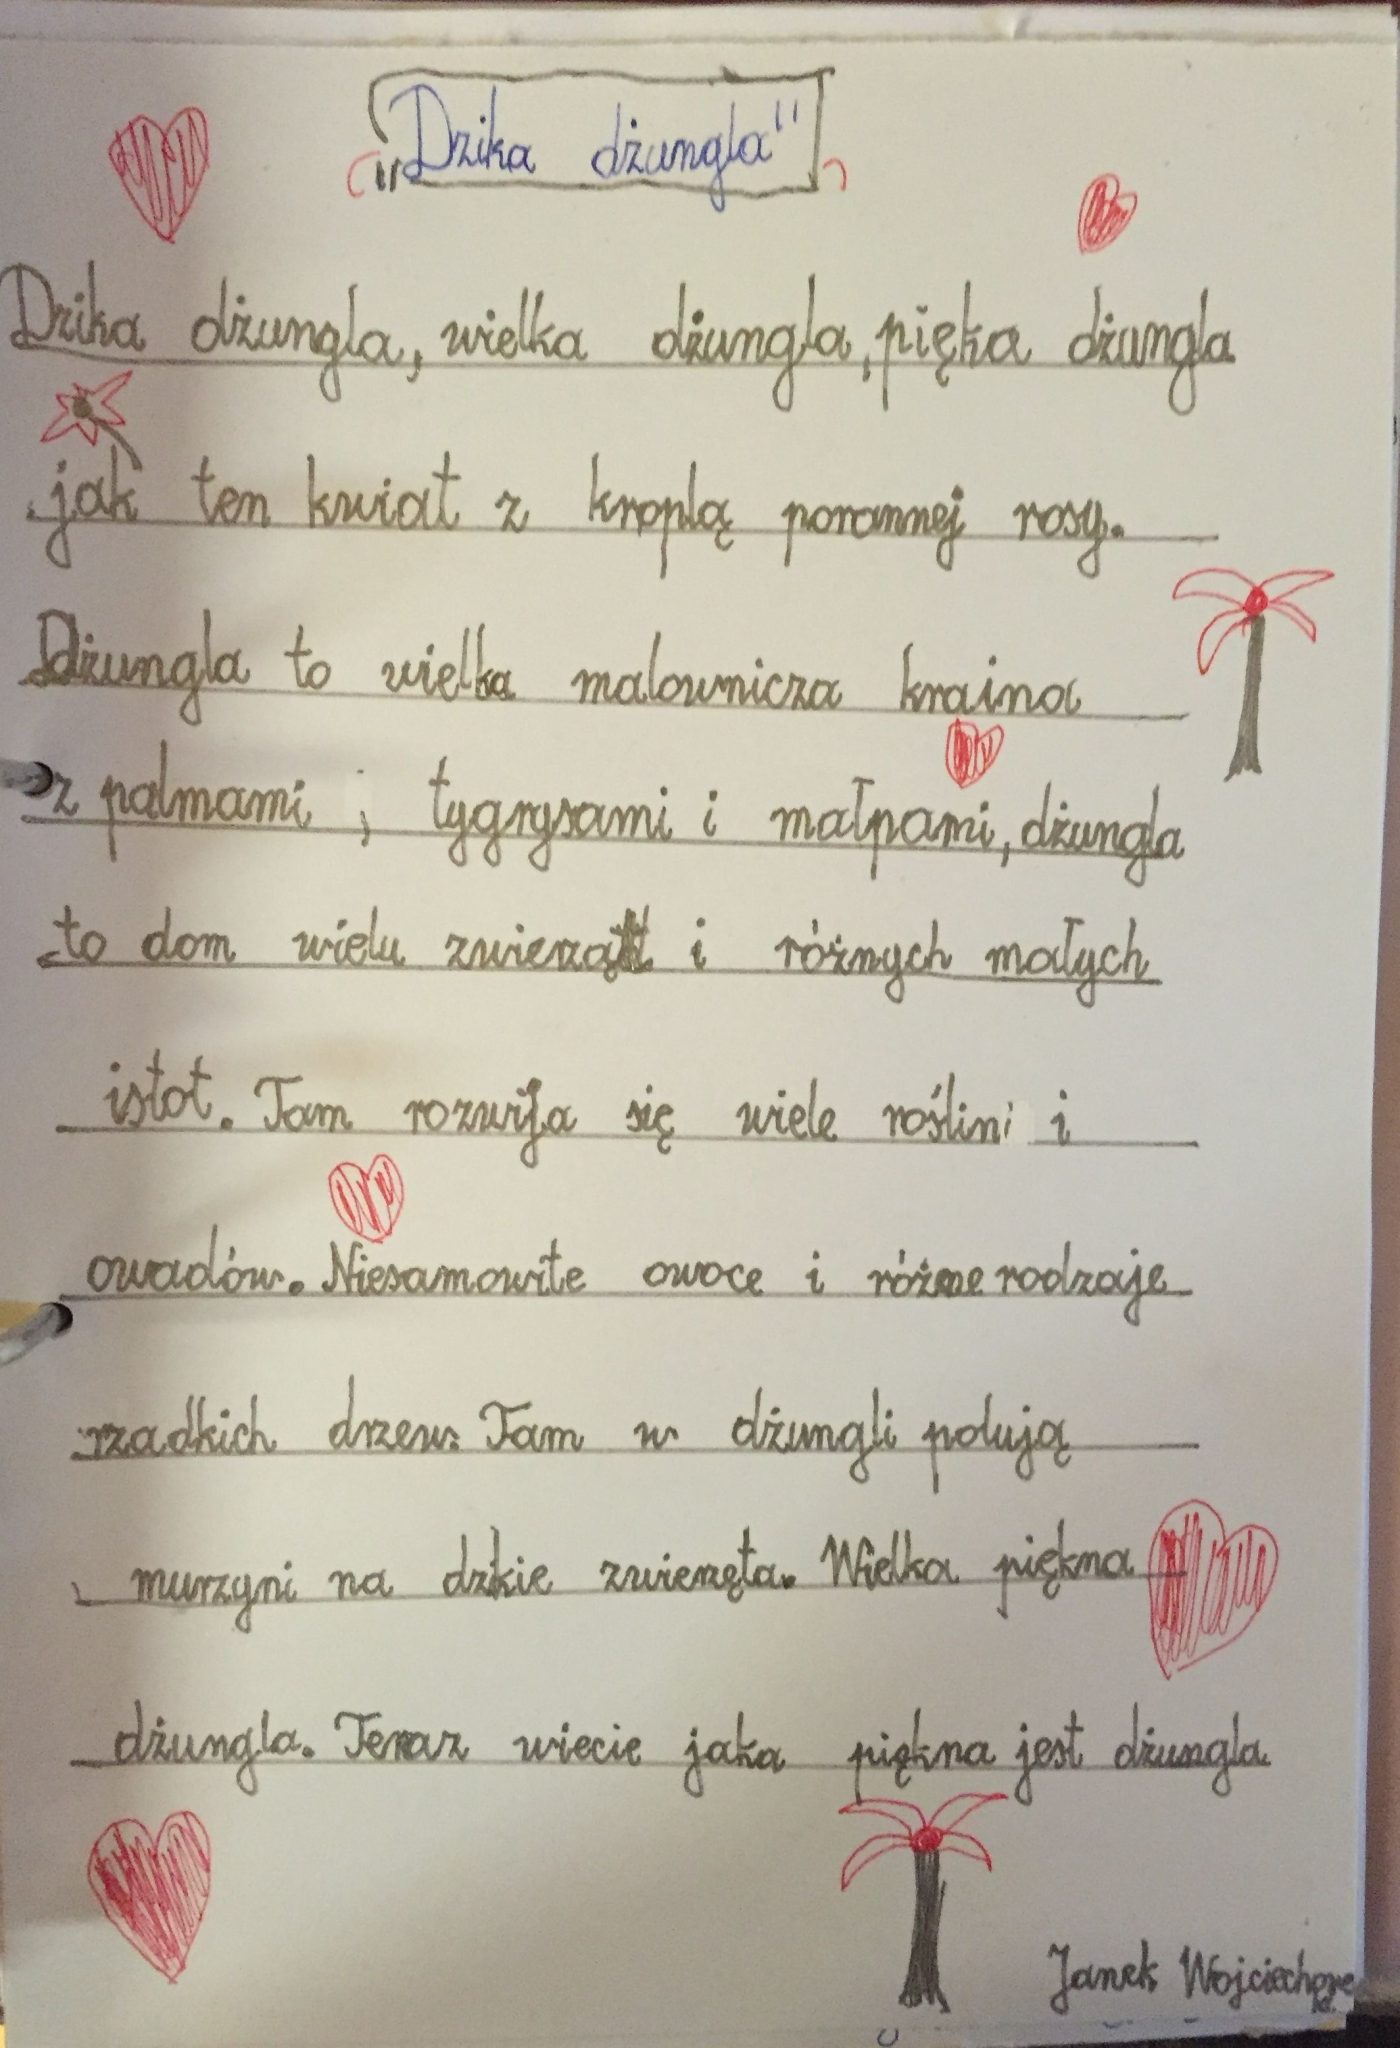 „Dzika dżungla"
Dzika dżungla, wielka dżungla, pięka dżungla
jak ten kwiat z kroplą porannej rosy.
Dżungla to wielka malownicza kraina
z palmami, tygrysami i małpami, dżungla
to dom wielu zwierząt i różnych małych
istot. Tam rozwija się wiele roślin i
owadów. Niesamowite owoce i różne rodzaje
rzadkich drzew. Tam w dżungli polują
murzyni na dzikie zwierzęta. Wielka piękna
dżungla. Teraz wiecie jaka piękna jest dżungla.
Janek